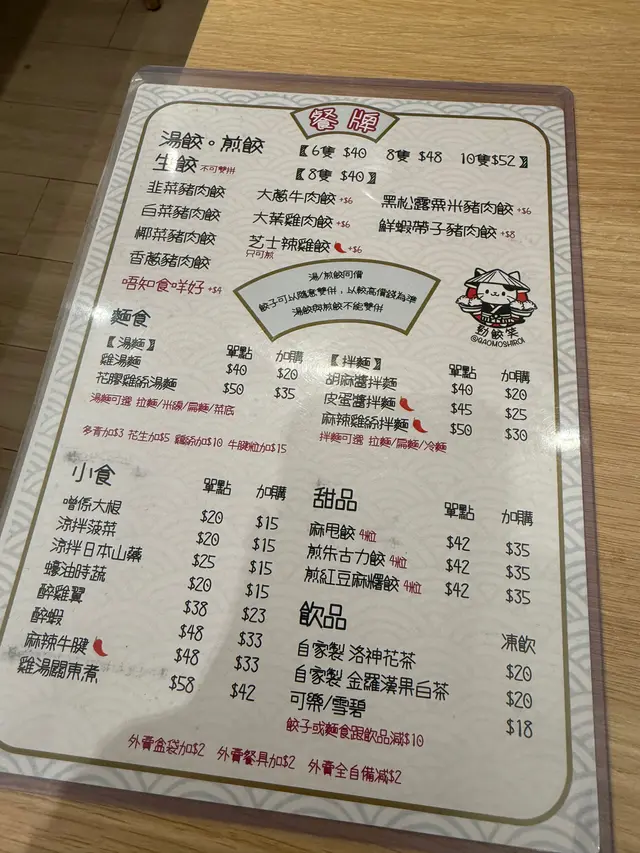 餐牌
湯餃。煎餃 【6隻 $40 8隻 $48 10隻$52】
生餃 不可雙併 【8隻 $40】
韭菜豬肉餃 大蔥牛肉餃 +$6 黑松露粟米豬肉餃 +$6
白菜豬肉餃 大葉雞肉餃 +$6 鮮蝦帶子豬肉餃 +$8
椰菜豬肉餃 芝士辣雞餃 +$6
只可煎
香蔥豬肉餃
唔知食咩好 +$4
湯/煎餃同價
餃子可以隨意雙併，以較高價錢為準
湯餃與煎餃不能雙併
勁餃笑
@GAOMOSHIROI
麵食
【湯麵】 單點 加購
雞湯麵 $40 $20
花膠雞絲湯麵 $50 $35
湯麵可選 拉麵/米線/扁麵/菜底
【拌麵】 單點 加購
胡麻醬拌麵 $40 $20
皮蛋醬拌麵 $45 $25
麻辣雞絲拌麵 $50 $30
拌麵可選 拉麵/扁麵/冷麵
多青加$3 花生加$5 雞絲加$10 牛腱粒加$15
小食 單點 加購
噌係大根 $20 $15
涼拌菠菜 $20 $15
涼拌日本山藥 $25 $15
蠔油時蔬 $20 $15
醉雞翼 $38 $23
醉蝦 $48 $33
麻辣牛腱 $48 $33
雞湯關東煮 $58 $42
甜品 單點 加購
麻甩餃 4粒 $42 $35
煎朱古力餃 4粒 $42 $35
煎紅豆麻糬餃 4粒 $42 $35
飲品 凍飲
自家製 洛神花茶 $20
自家製 金羅漢果白茶 $20
可樂/雪碧 $18
餃子或麵食跟飲品減$10
外賣盒袋加$2 外賣餐具加$2 外賣全自備減$2